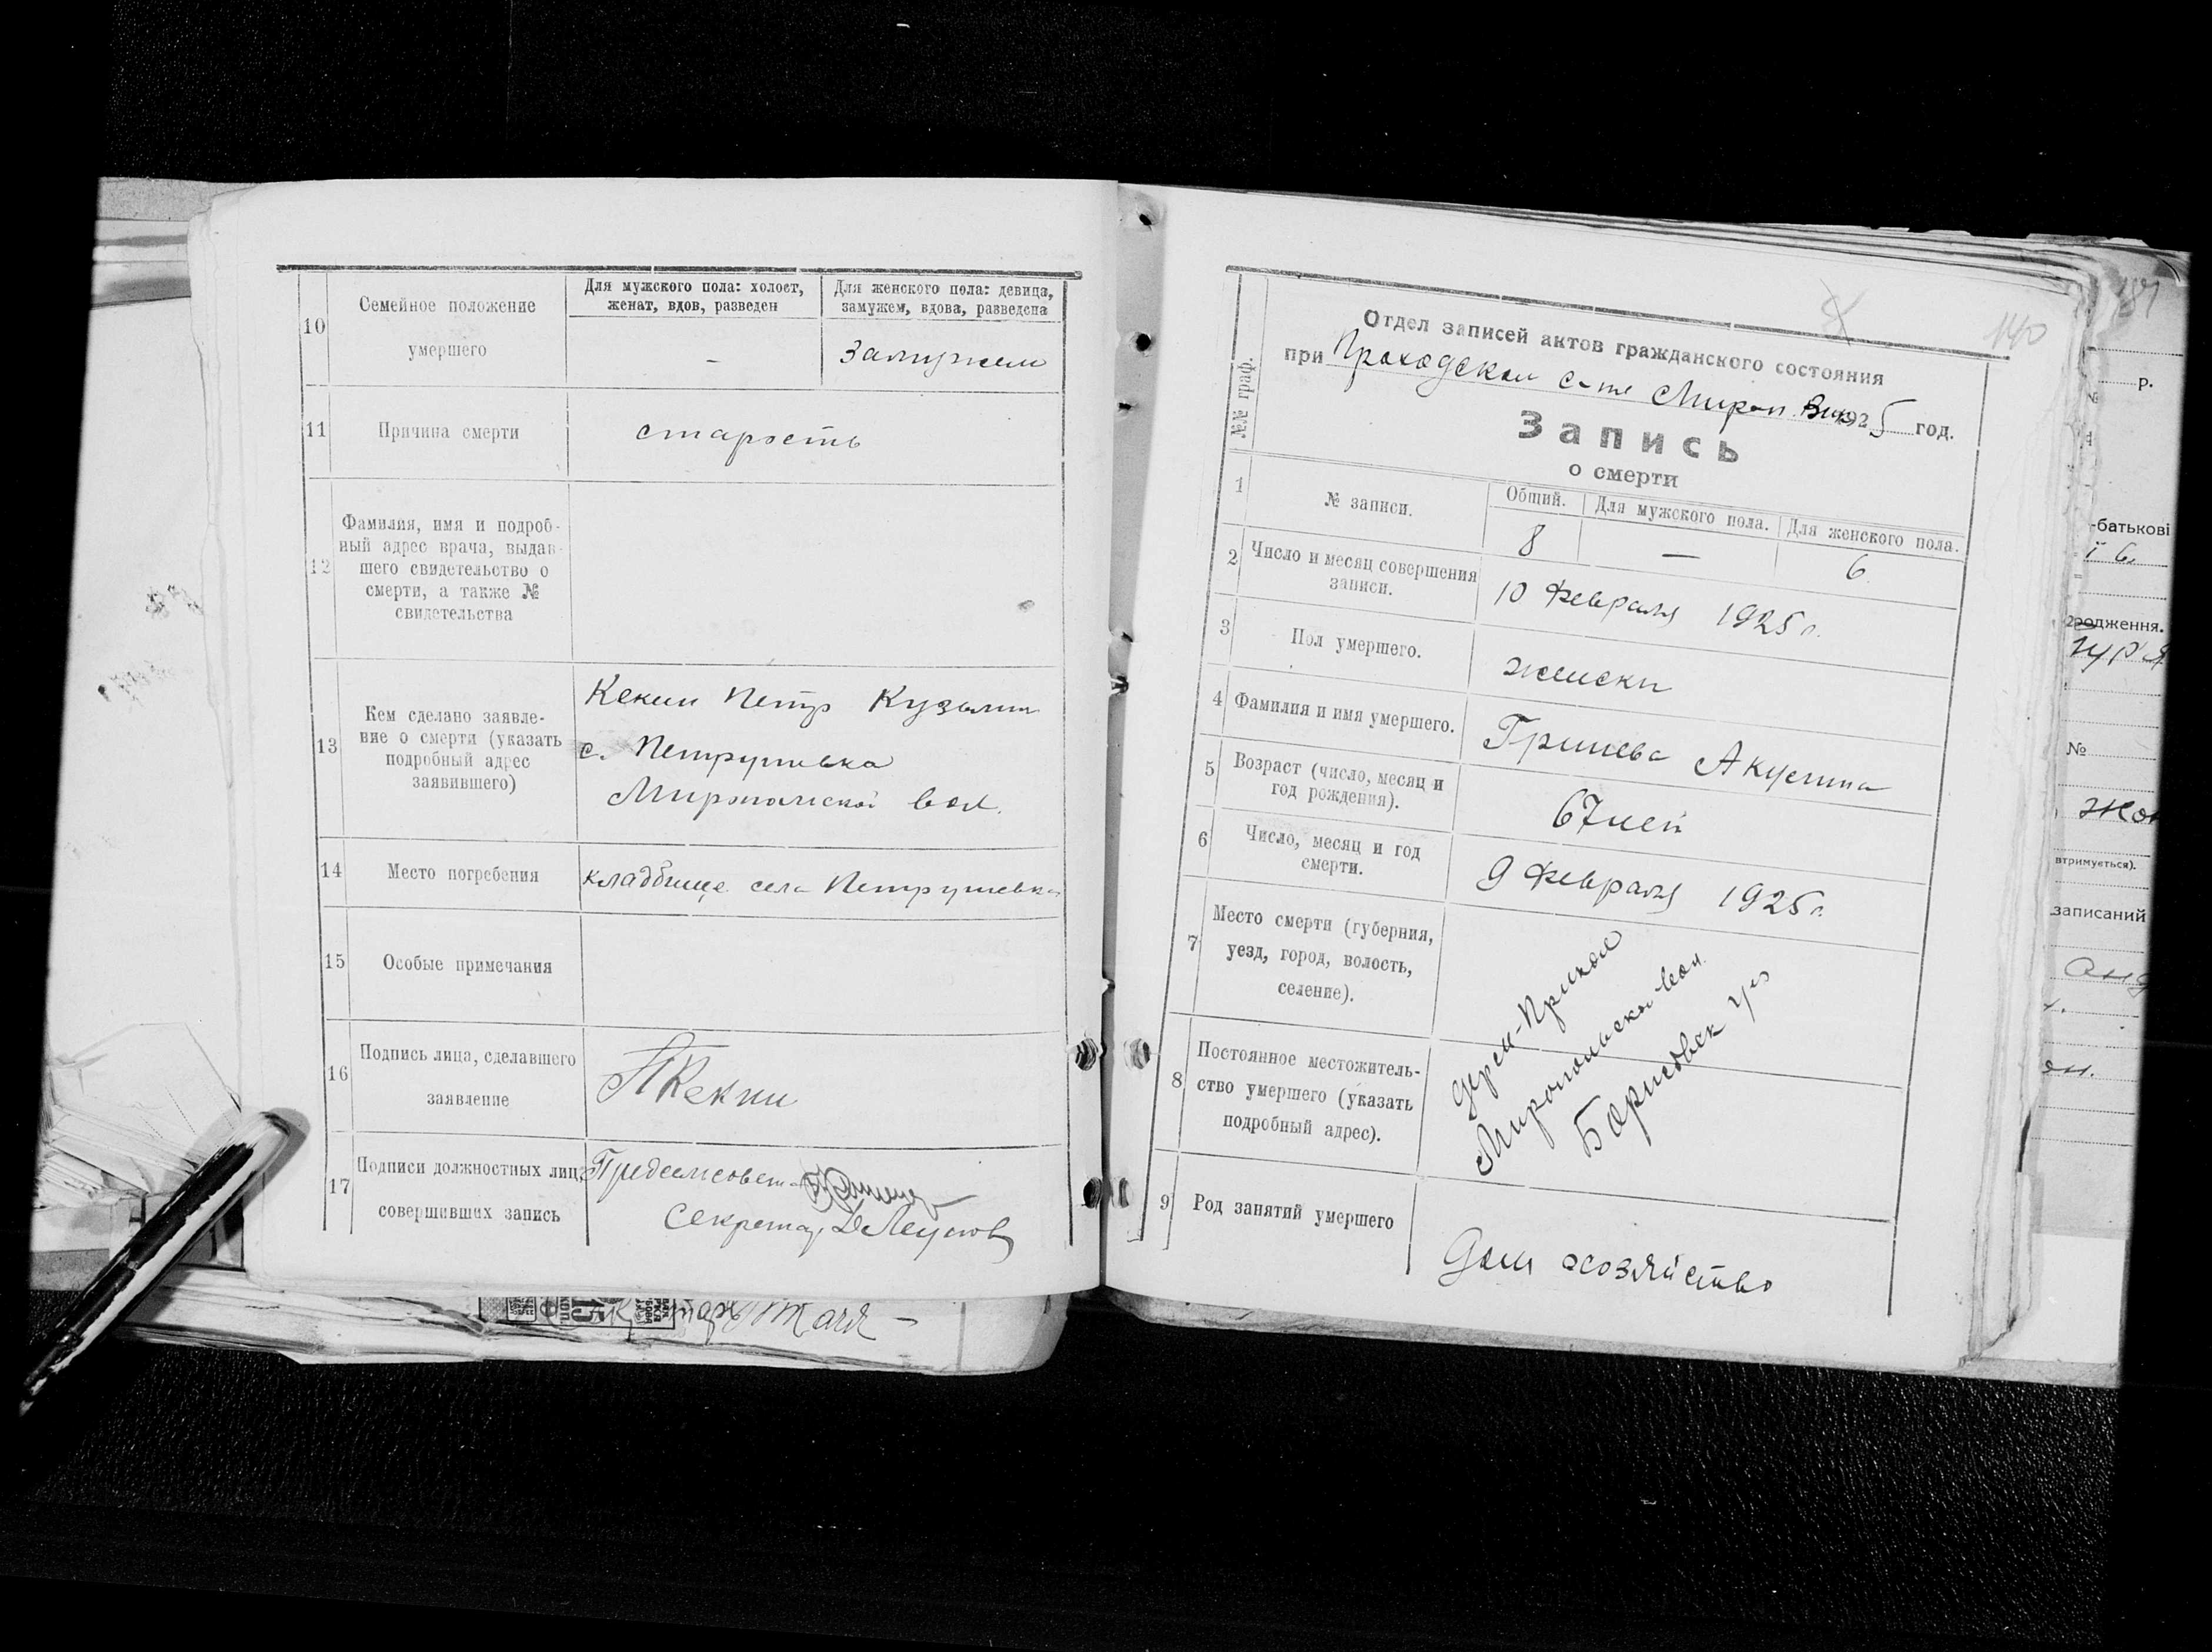 10
Семейное положение
умершего
Для мужского пола: холост,
женат, вдов, разведен
Для женского пола: девица,
замужем, вдова, разведена
—
Замужем
11
Причина смерти
старость
12
Фамилия, имя и подроб-
ный адрес врача, выдав-
шего свидетельство о
смерти, а также №
свидетельства
13
Кем сделано заявле-
ние о смерти (указать
подробный адрес
заявившего)
Кекин Петр Кузьмич
с. Петрушевка
Миропольской вол.
14
Место погребения
кладбище села Петрушевка
15
Особые примечания
16
Подпись лица, сделавшего
заявление
П Кекин
17
Подписи должностных лиц,
совершивших запись
Предсельсовета
Секретарь
140
№№ граф.
Отдел записей актов гражданского состояния
при 1925 год.
Запись
о смерти
1
№ записи.
Общий.
Для мужского пола.
Для женского пола.
8
—
6
2
Число и месяц совершения
записи.
10 Февраля 1925 г.
3
Пол умершего.
женски
4
Фамилия и имя умершего.
Гринева Акулина
5
Возраст (число, месяц и
год рождения).
67 лет
6
Число, месяц и год
смерти.
9 Февраля 1925 г.
7
Место смерти (губерния,
уезд, город, волость,
селение).
8
Постоянное местожитель-
ство умершего (указать
подробный адрес).
Миропольской вол.
9
Род занятий умершего
Дом хозяйство
187
р.
№
-батькові
родження.
№
втримується).
записаний